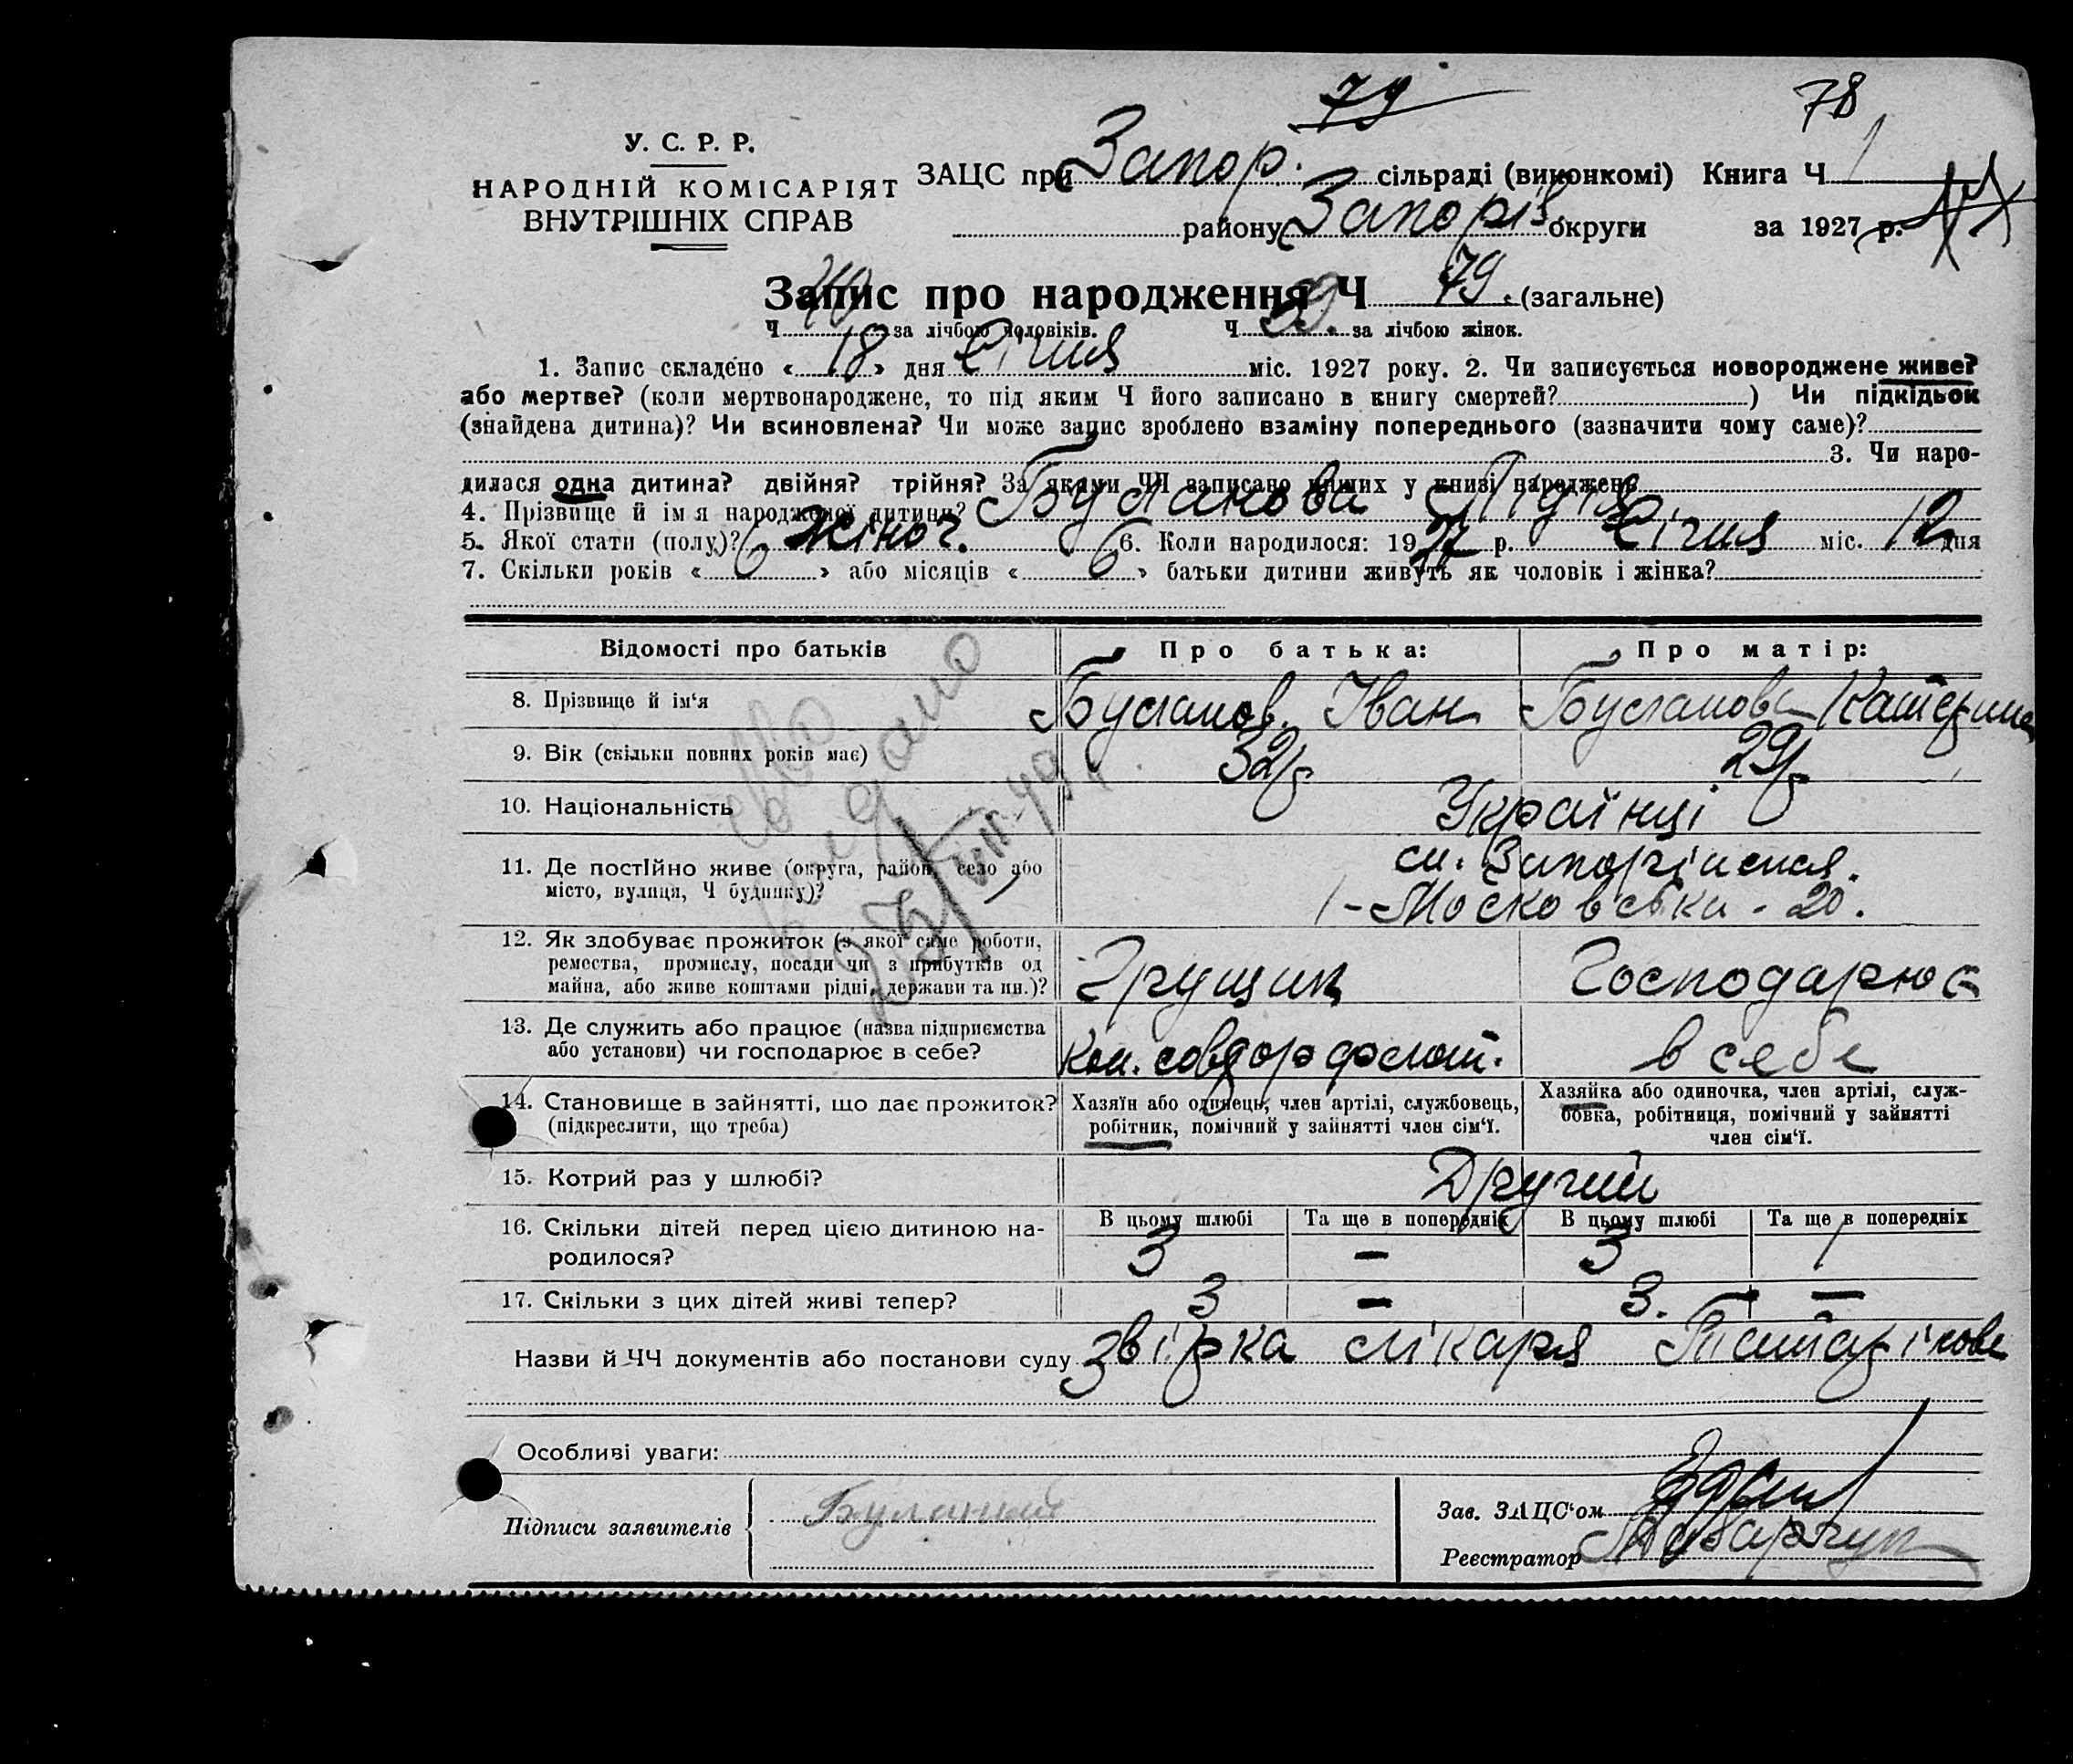 79
78
У. С. Р. Р.
НАРОДНІЙ КОМІСАРІЯТ
ВНУТРІШНІХ СПРАВ
ЗАЦС при Запор. сільраді (виконкомі) Книга Ч 1
району Запоріз. округи за 1927 р.
Запис про народження Ч 79. (загальне)
Ч 40 за лічбою чоловіків. Ч 39. за лічбою жінок.
1. Запис складено « 18 » дня Січня міс. 1927 року. 2. Чи записується новороджене живе?
або мертве? (коли мертвонароджене, то під яким Ч його записано в книгу смертей? ) Чи підкідьок
(знайдена дитина)? Чи всиновлена? Чи може запис зроблено взаміну попереднього (зазначити чому саме)?
3. Чи наро-
дилася одна дитина? двійня? трійня? За якими ЧЧ записано инших у книзі народжень
4. Прізвище й ім я народженої дитини? Бусланова Лідія
5. Якої стати (полу)? Жіноч. 6. Коли народилося: 1927 р. Січня міс. 12 дня
7. Скільки років « 6 » або місяців « 6 » батьки дитини живуть як чоловік і жінка?
Відомості про батьків Про батька: Про матір:
8. Прізвище й ім‘я Бусланов Іван Бусланова Катерина
9. Вік (скільки повних років має) 32 р 29 р
10. Національність Українці
11. Де постійно живе (округа, район, село або
місто, вулиця, Ч будинку)? см. Запоріжжя.
1-Московська - 20.
12. Як здобуває прожиток (з якої саме роботи,
ремества, промислу, посади чи з прибутків од
майна, або живе коштами рідні, держави та ин.)? Грущик Господарює
13. Де служить або працює (назва підприємства
або установи) чи господарює в себе? в себе
14. Становище в зайнятті, що дає прожиток?
(підкреслити, що треба)
Хазяїн або одинець, член артілі, службовець,
робітник, помічний у зайнятті член сім‘ї.
Хазяйка або одиночка, член артілі, служ-
бовка, робітниця, помічний у зайнятті
член сім‘ї.
15. Котрий раз у шлюбі? Другий
16. Скільки дітей перед цією дитиною на-
родилося?
В цьому шлюбі Та ще в попередніх В цьому шлюбі Та ще в попередніх
3 — 3 1
17. Скільки з цих дітей живі тепер? 3 — 3. —
Назви й ЧЧ документів або постанови суду Звірка лікаря
Особливі уваги:
Підписи заявителів
Зав. ЗАЦС‘ом
Реєстратор